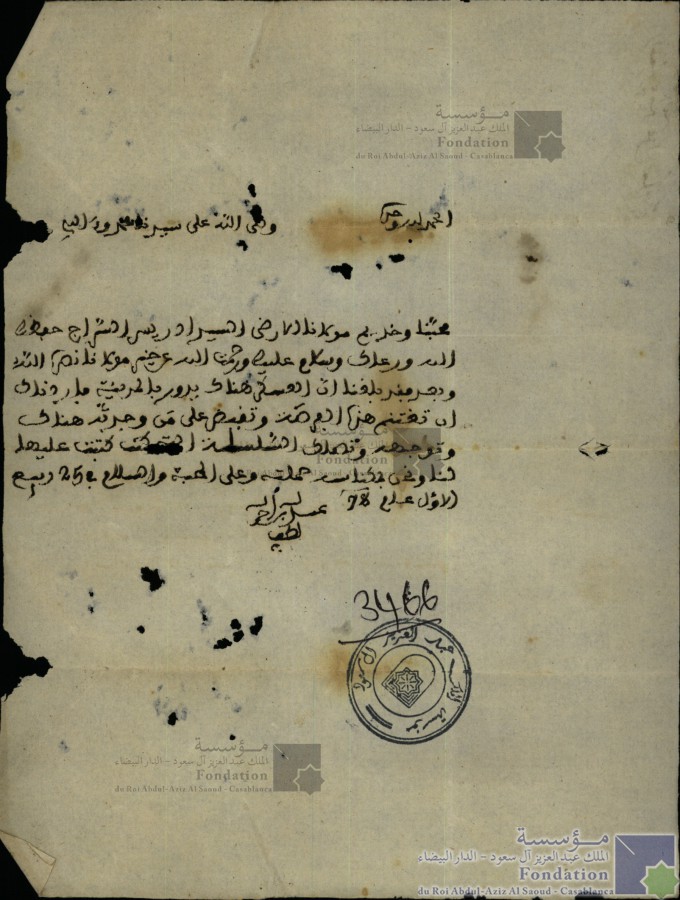 مؤسسة
الملك عبد العزيز آل سعود - الدار البيضاء
Fondation
du Roi Abdul-Aziz Al Saoud - Casablanca
الحمد لله وحده وصلى الله على سيدنا محمد وآله
محبنا وخديم مولانا الارضى السيد ادريس السراج حفظك
الله ورعاك وسلام عليك ورحمة الله عن خير مولانا نصره الله
وبعد فقد بلغنا ان العسكر هناك يدور بالمدينة فاردناك
ان تغتنم هذه الفرصة وتقبض على من وجدته هناك
وتوجهه وتصلك السلسلة كتبت عليها
لنا ونحن بمكناسة وعلى المحبة والسلام في 25 ربيع
الاول عام 78
عبد الله بن احمد
لطف الله به
3466
مؤسسة الملك عبد العزيز ال سعود
مؤسسة
الملك عبد العزيز آل سعود - الدار البيضاء
Fondation
du Roi Abdul-Aziz Al Saoud - Casablanca
مؤسسة
الملك عبد العزيز آل سعود - الدار البيضاء
Fondation
du Roi Abdul-Aziz Al Saoud - Casablanca